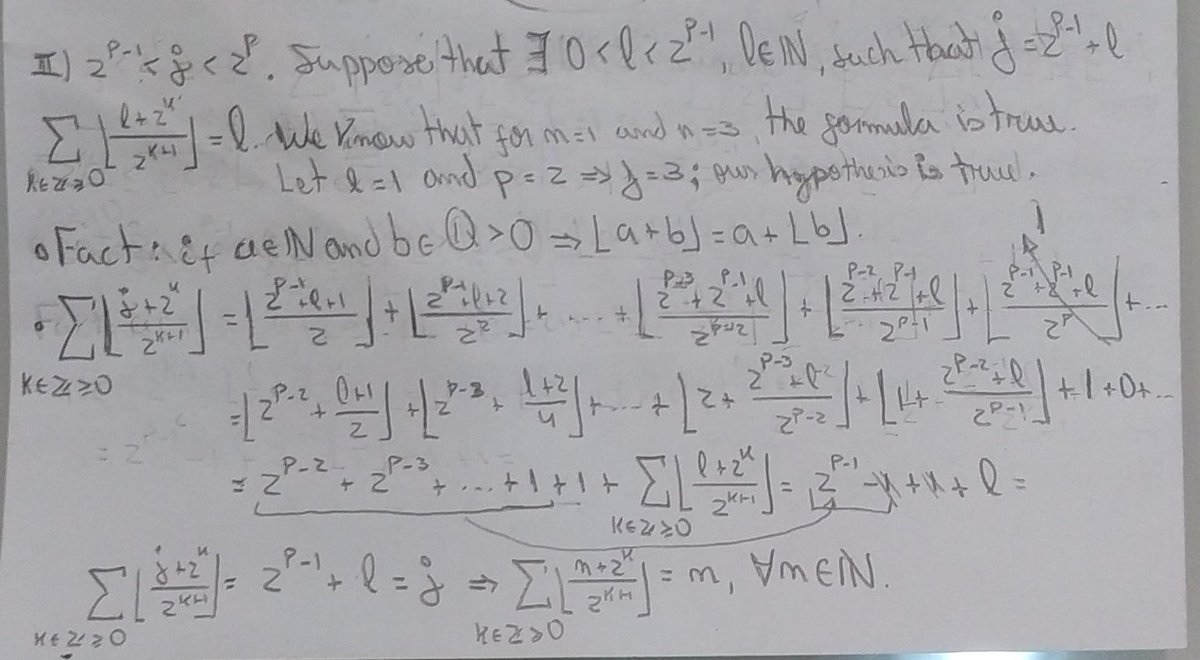 II) 2^{p-1} < j < 2^p. Suppose that ∃ 0 < l < 2^{p-1}, l ∈ ℕ, such that j = 2^{p-1} + l
∑_{k∈ℤ≥0} ⌊(l+2^k)/2^{k+1}⌋ = l. We know that for n=1 and n=3, the formula is true.
Let l=1 and p=2 ⇒ j=3; our hypothesis is true.
• Fact: if a∈ℕ and b∈ℚ>0 ⇒ ⌊a+b⌋ = a+⌊b⌋.
1
• ∑_{k∈ℤ≥0} ⌊(j+2^k)/2^{k+1}⌋ = ⌊(2^{p-1}+l+1)/2⌋ + ⌊(2^{p-1}+l+2)/2^2⌋ + .... + ⌊(2^{p-3}+2^{p-1}+l)/2^{p-2}⌋ + ⌊(2^{p-2}+2^{p-1}+l)/2^{p-1}⌋ + ⌊(2^{p-1}+2^{p-1}+l)/2^p⌋ + ...
= ⌊2^{p-2} + (l+1)/2⌋ + ⌊2^{p-3} + (l+2)/4⌋ + .... + ⌊2 + (2^{p-3}+l)/2^{p-2}⌋ + ⌊1 + (2^{p-2}+l)/2^{p-1}⌋ + 1 + 0 + ...
= 2^{p-2} + 2^{p-3} + ... + 1 + 1 + ∑_{k∈ℤ≥0} ⌊(l+2^k)/2^{k+1}⌋ = 2^{p-1} - 1 + 1 + l =
∑_{k∈ℤ≥0} ⌊(j+2^k)/2^{k+1}⌋ = 2^{p-1} + l = j ⇒ ∑_{k∈ℤ≥0} ⌊(n+2^k)/2^{k+1}⌋ = n, ∀n∈ℕ.